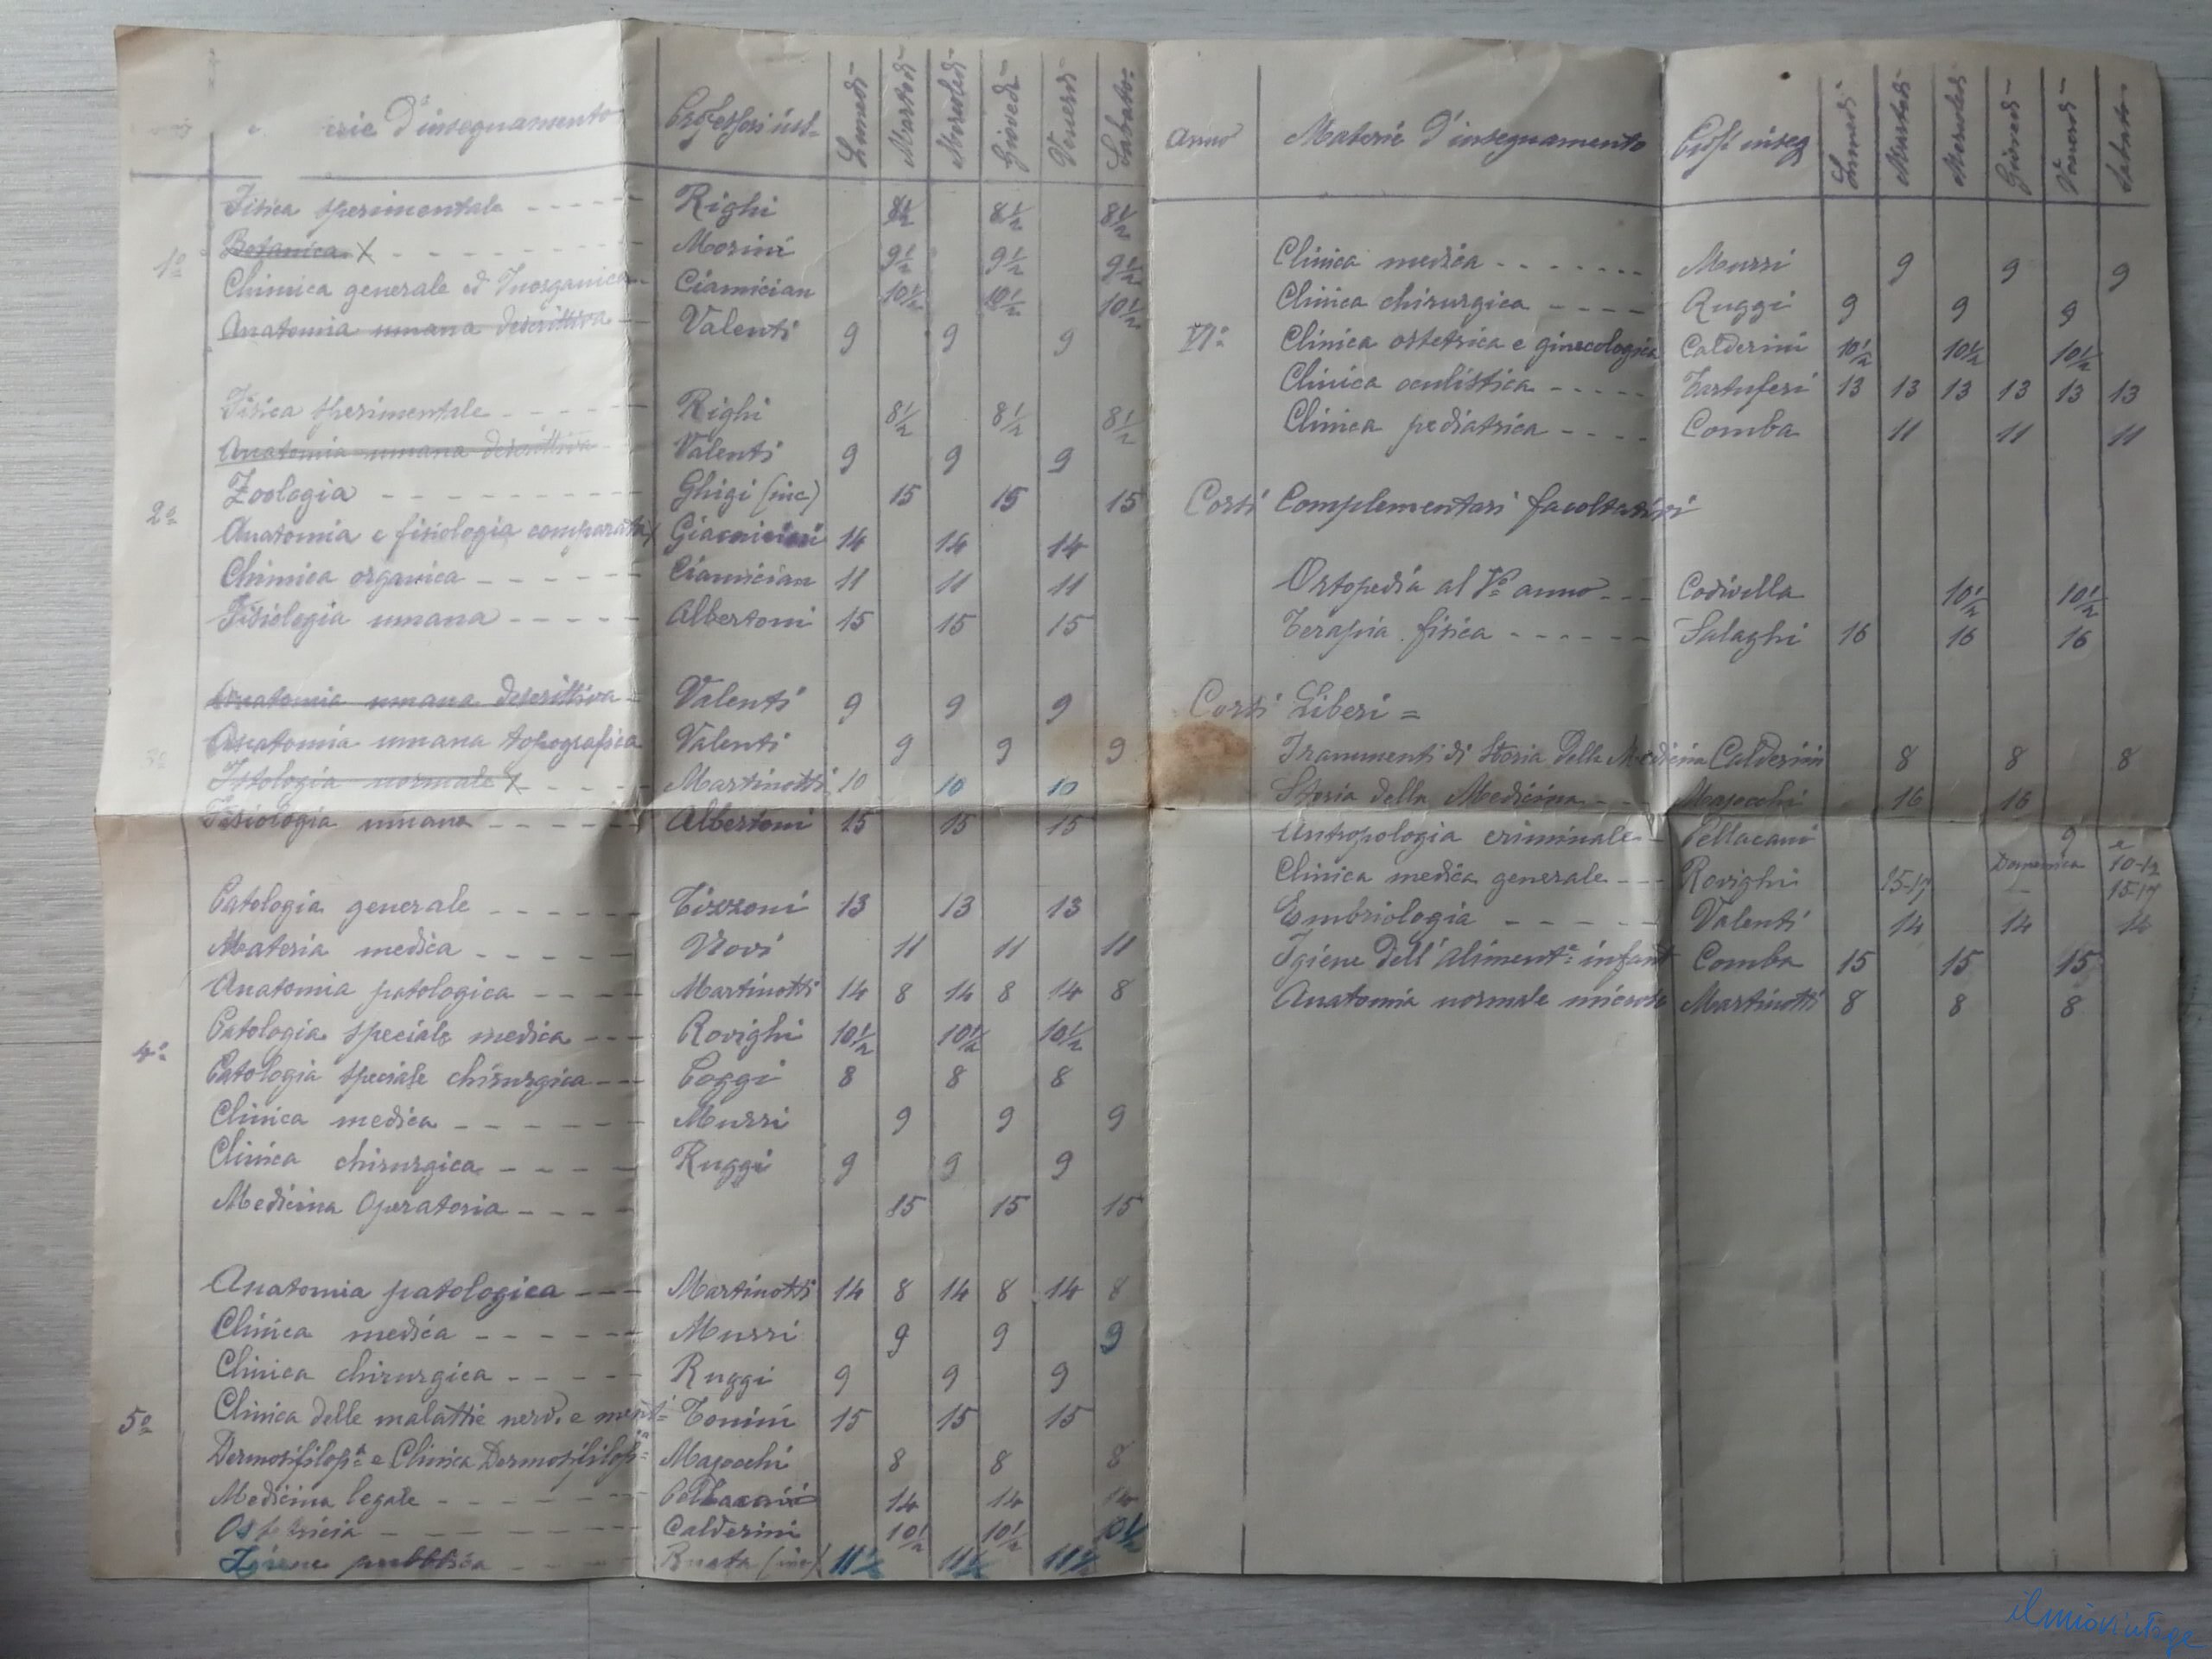 d'insegnamento Professori ins. Lunedì Martedì Mercoledì Giovedì Venerdì Sabato
Fisica sperimentale Righi 8½ 8½ 8½
1º Botanica X Morini 9½ 9½ 9½
Chimica generale ed Inorganica Ciamician 10½ 10½ 10½
Anatomia umana descrittiva Valenti 9 9 9
Fisica sperimentale Righi 8½ 8½ 8½
Anatomia umana descrittiva Valenti 9 9 9
Zoologia Ghigi (inc) 15 15 15
2º Anatomia e fisiologia comparata 14 14 14
Chimica organica Ciamician 11 11 11
Fisiologia umana Albertoni 15 15 15
Anatomia umana descrittiva Valenti 9 9 9
Anatomia umana topografica Valenti 9 9 9
Istologia normale X Martinotti 10 10 10
Fisiologia umana Albertoni 15 15 15
Patologia generale Tizzoni 13 13 13
Materia medica Novi 11 11 11
Anatomia patologica Martinotti 14 8 14 8 14 8
4º Patologia speciale medica Rovighi 10½ 10½ 10½
Patologia speciale chirurgica Poggi 8 8 8
Clinica medica Murri 9 9 9
Clinica chirurgica Ruggi 9 9 9
Medicina Operatoria 15 15 15
Anatomia patologica Martinotti 14 8 14 8 14 8
Clinica medica Murri 9 9 9
Clinica chirurgica Ruggi 9 9 9
5º Clinica delle malattie nerv. e ment. Tonini 15 15 15
Dermosifilopª e Clinica Dermosifilopª Majocchi 8 8 8
Medicina legale Pellacani 14 14 14
Ostetricia Calderini 10½ 10½ 10½
Igiene pubblica Ruata (inc) 11½ 11½ 11½
Anno Materie d'insegnamento Profⁱ inseg Lunedì Martedì Mercoledì Giovedì Venerdì Sabato
Clinica medica Murri 9 9 9
Clinica chirurgica Ruggi 9 9 9
VIº Clinica ostetrica e ginecologica Calderini 10½ 10½ 10½
Clinica oculistica Tartuferi 13 13 13 13 13 13
Clinica pediatrica Comba 11 11 11
Corsi Complementari facoltativi
Ortopedia al Vº anno Codivilla 10½ 10½
Terapia fisica Salaghi 16 16 16
Corsi Liberi =
Frammenti di Storia della Medicina Calderini 8 8 8
Storia della Medicina Majocchi 16 16
Antropologia criminale Pellacani 9
Clinica medica generale Rovighi 15-17 Domenica e 10-12 15-17
Embriologia Valenti 14 14 14
Igiene dell'Alimentª infant Comba 15 15 15
Anatomia normale microsc Martinotti 8 8 8
ilmiovintage